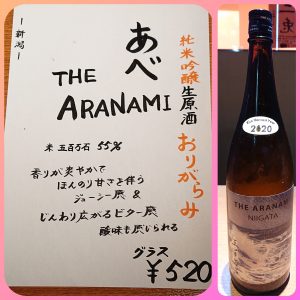 －新潟－
あべ
THE
ARANAMI
純米吟醸生原酒
おりがらみ
米 五百万石 55%
香りが爽やかで
ほんのり甘さと伴う
ジューシー感 &
じんわり広がるビター感
酸味も感じられる
グラス
¥520
2020
THE ARANAMI
NIIGATA